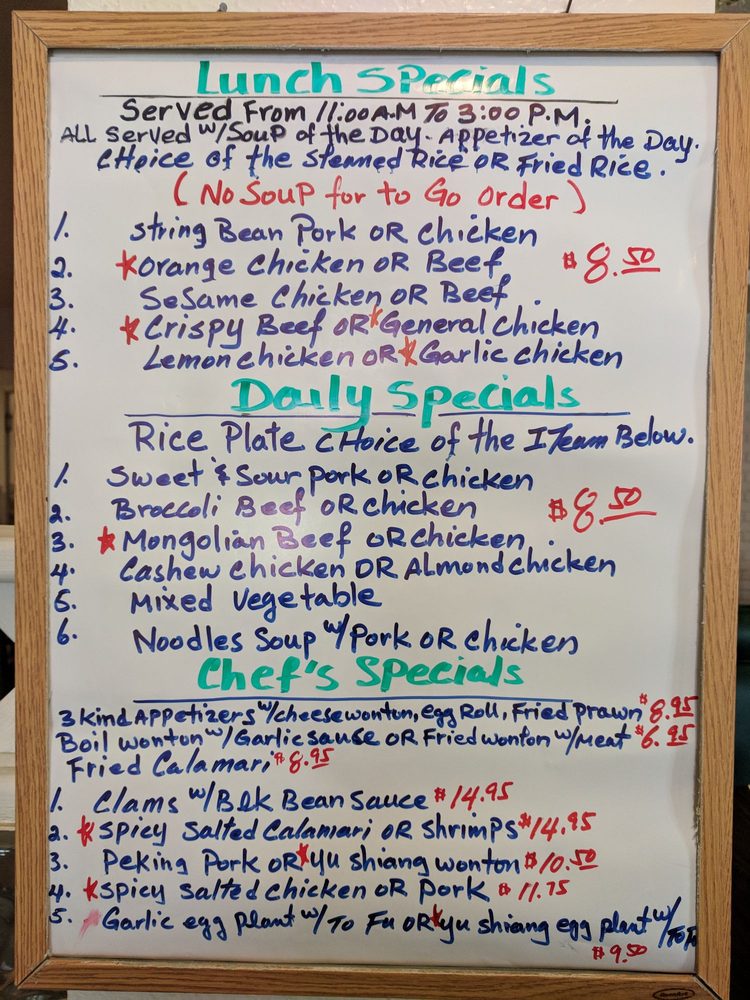 Lunch Specials
Served From 11:00 A.M To 3:00 P.M.
ALL Served w/Soup of the Day. Appetizer of the Day.
CHoice of the Steamed Rice OR Fried Rice.
( No Soup for to Go Order )
1. string Bean Pork OR Chicken
2. *Orange Chicken OR Beef $8.50
3. SeSame Chicken OR Beef.
4. *Crispy Beef OR *General Chicken
5. Lemon chicken OR *Garlic chicken
Daily Specials
Rice Plate CHoice of the ITeam Below.
1. Sweet & Sour pork OR chicken
2. Broccoli Beef OR chicken $8.50
3. *Mongolian Beef OR chicken.
4. Cashew chicken OR Almond chicken
5. Mixed Vegetable
6. Noodles Soup w/Pork OR chicken
Chef's Specials
3 Kind Appetizers w/cheese wonton, egg Roll, Fried Prawn $8.95
Boil wonton w/Garlic sause OR Fried wonton w/Meat $6.95
Fried Calamari $8.95
1. Clams w/Blk Bean Sauce $14.95
2. *Spicy Salted Calamari OR Shrimps $14.95
3. Peking Pork OR *Yu Shiang wonton $10.50
4. *Spicy Salted chicken OR Pork $11.75
5. Garlic egg plant w/To Fu OR *yu shiang egg plant w/ToFu
$9.50